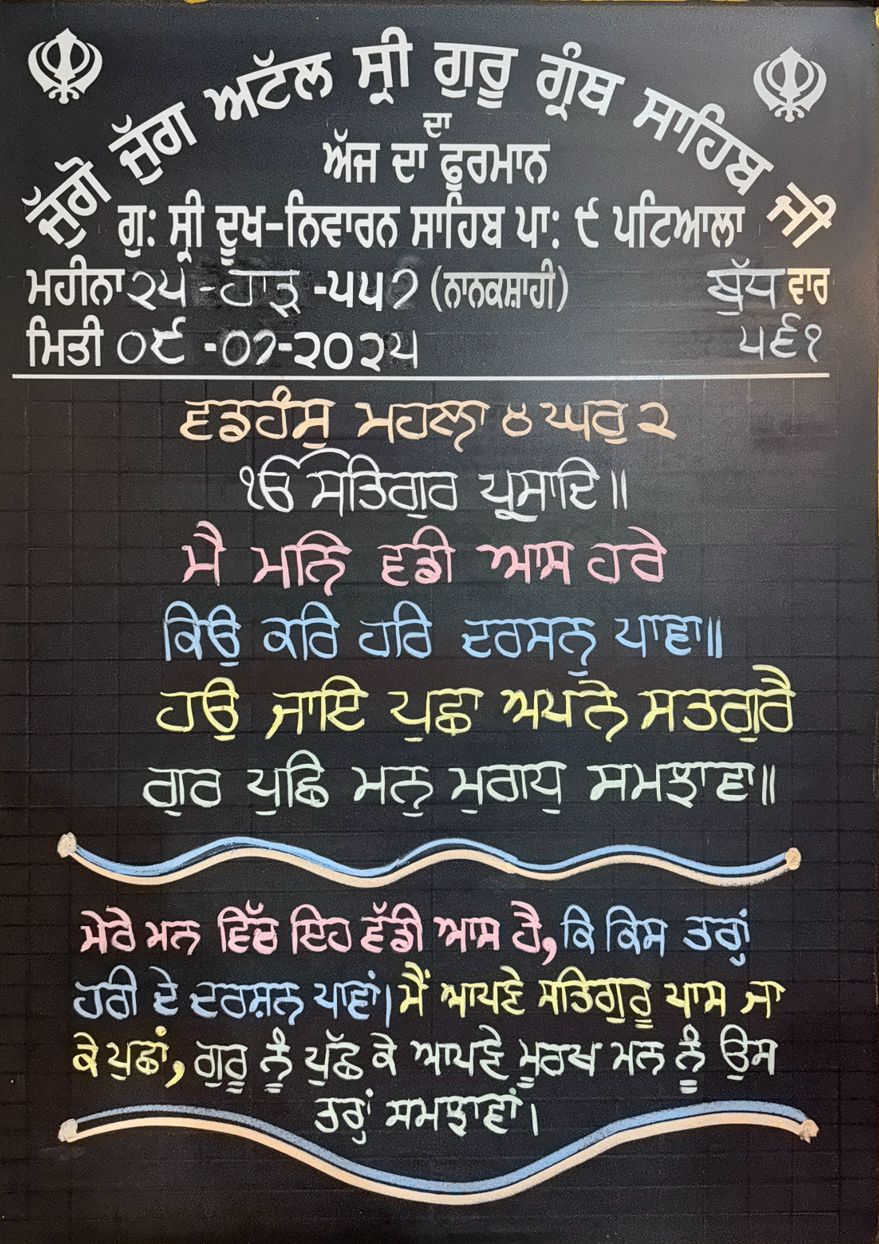 ਜੁੱਗੋ ਜੁੱਗ ਅਟੱਲ ਸ੍ਰੀ ਗੁਰੂ ਗ੍ਰੰਥ ਸਾਹਿਬ ਜੀ
ਦਾ
ਅੱਜ ਦਾ ਫੁਰਮਾਨ
ਗੁ: ਸ੍ਰੀ ਦੂਖ-ਨਿਵਾਰਨ ਸਾਹਿਬ ਪਾ: ੯ ਪਟਿਆਲਾ
ਮਹੀਨਾ ੨੫ -ਹਾੜ੍ਹ -੫੫੭ (ਨਾਨਕਸ਼ਾਹੀ) ਬੁੱਧ ਵਾਰ
ਮਿਤੀ ੦੯ -੦੭-੨੦੨੫ ੫੬੧
ਵਡਹੰਸੁ ਮਹਲਾ ੪ ਘਰੁ ੨
ੴ ਸਤਿਗੁਰ ਪ੍ਰਸਾਦਿ॥
ਮੈ ਮਨਿ ਵਡੀ ਆਸ ਹਰੇ
ਕਿਉ ਕਰਿ ਹਰਿ ਦਰਸਨੁ ਪਾਵਾ॥
ਹਉ ਜਾਇ ਪੁਛਾ ਅਪਨੇ ਸਤਗੁਰੈ
ਗੁਰ ਪੁਛਿ ਮਨੁ ਮੁਗਧੁ ਸਮਝਾਵਾ॥
ਮੇਰੇ ਮਨ ਵਿੱਚ ਇਹ ਵੱਡੀ ਆਸ ਹੈ, ਕਿ ਕਿਸ ਤਰ੍ਹਾਂ
ਹਰੀ ਦੇ ਦਰਸ਼ਨ ਪਾਵਾਂ। ਮੈਂ ਆਪਣੇ ਸਤਿਗੁਰੂ ਪਾਸ ਜਾ
ਕੇ ਪੁਛਾਂ, ਗੁਰੂ ਨੂੰ ਪੁੱਛ ਕੇ ਆਪਣੇ ਮੂਰਖ ਮਨ ਨੂੰ ਉਸ
ਤਰ੍ਹਾਂ ਸਮਝਾਵਾਂ।